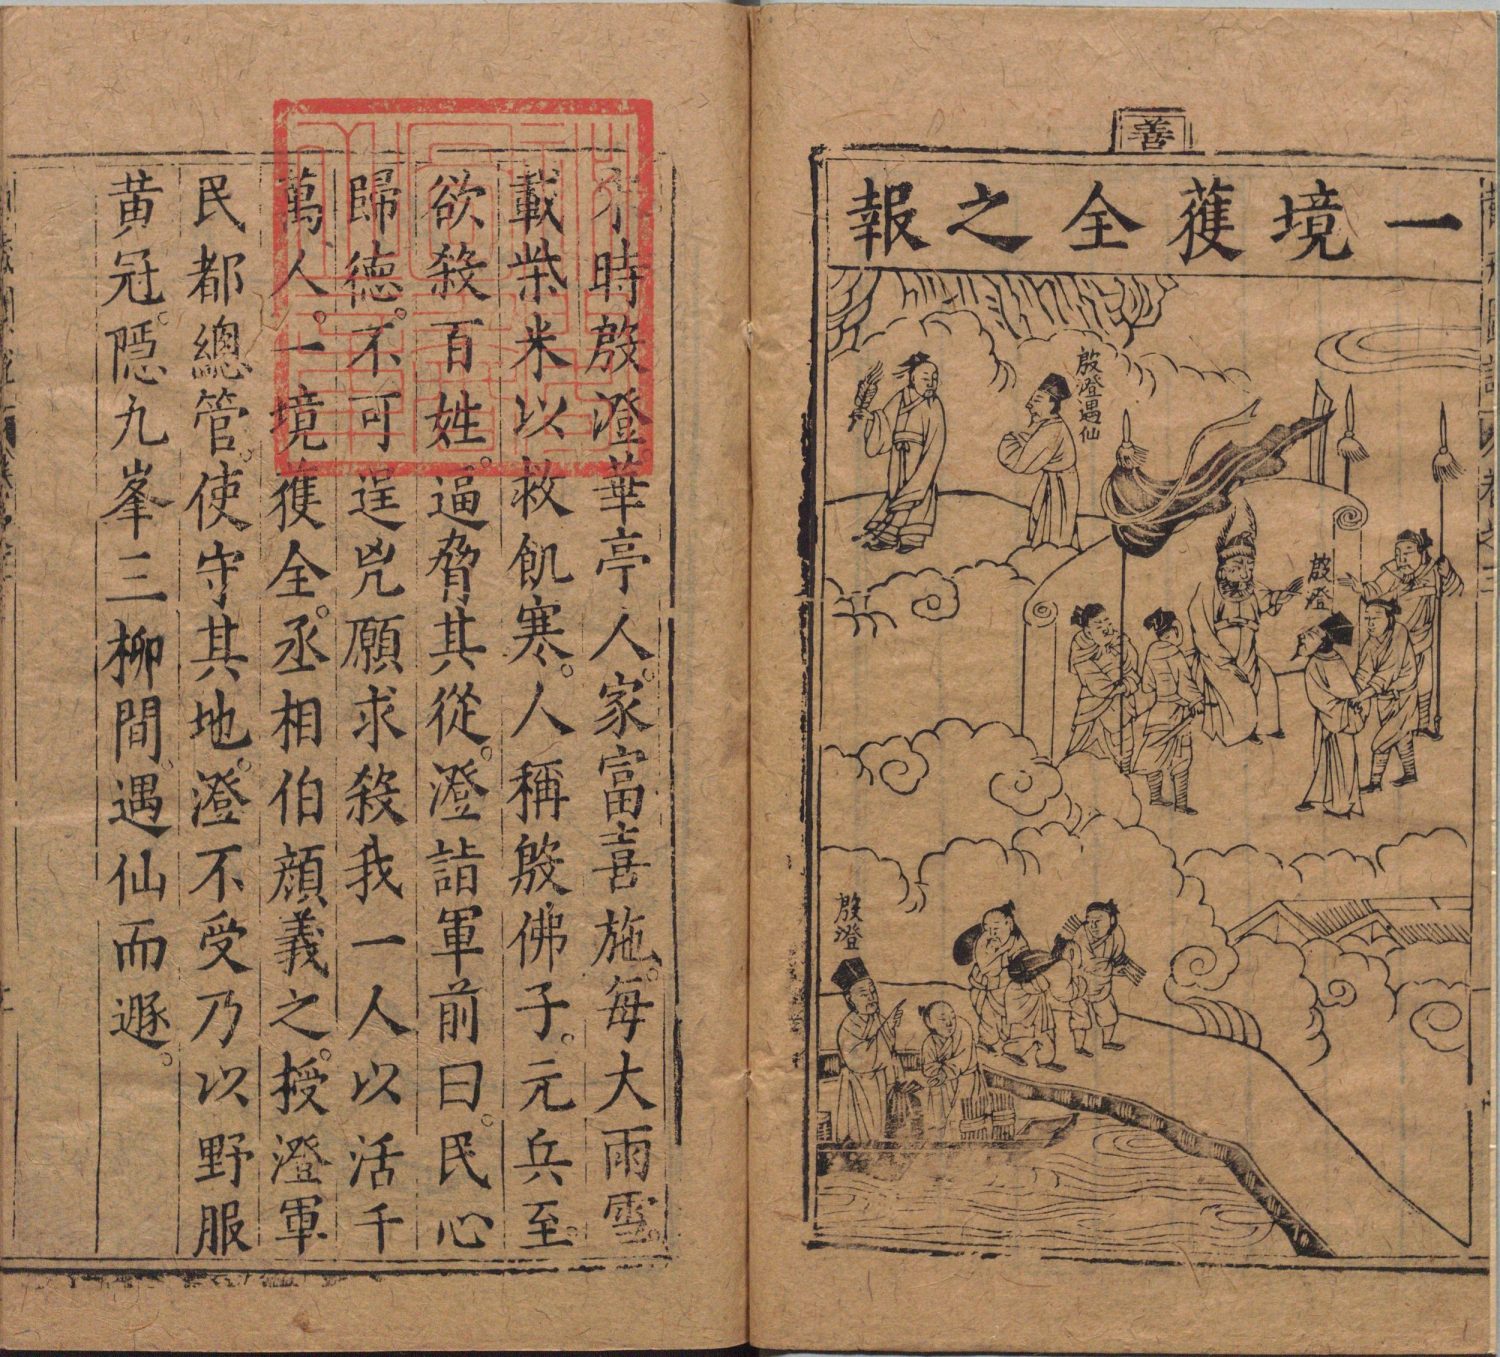 善
一境獲全之報
殷澄遇仙
殷澄
殷澄
宋時殷澄。華亭人。家富喜施。每大雨雪。
載柴米以救飢寒。人稱殷佛子。元兵至。
欲殺百姓。逼脅其從。澄詣軍前曰。民心
歸德。不可逞兇願求殺我一人以活千
萬人。一境獲全。丞相伯顏義之。授澄軍
民都總管。使守其地。澄不受乃以野服
黄冠。隱九峯三柳間。遇仙而遯。